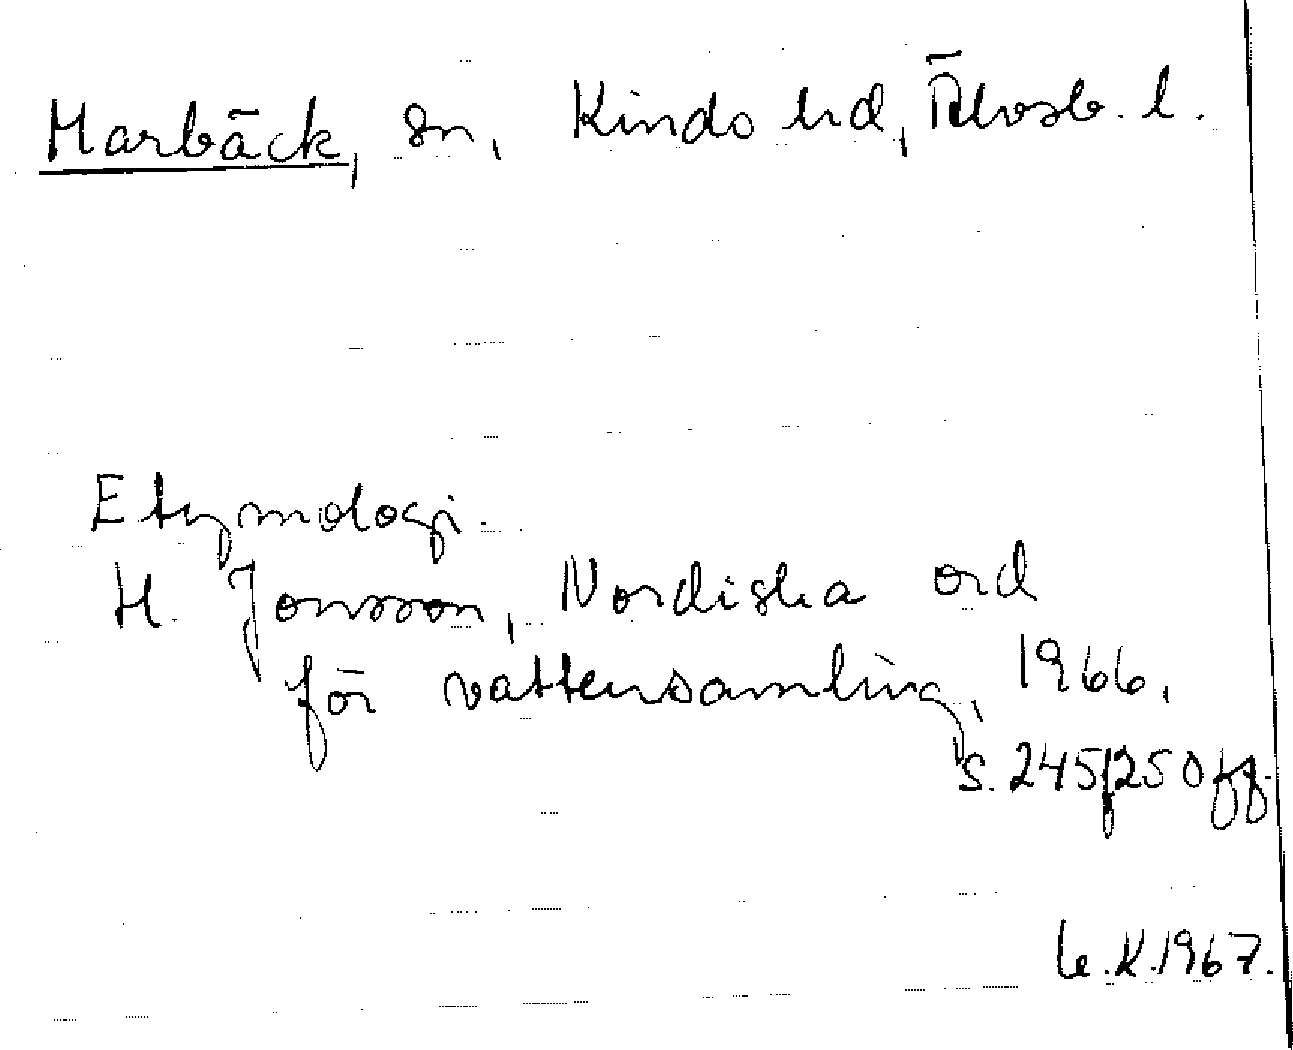 Marbäck, sn, Kinds hd, Älvsb. l.
Etymologi.
H. Jonsson, Nordiska ord
för vattensamling, 1966.
S. 245, 250 ff.
K. 1967.